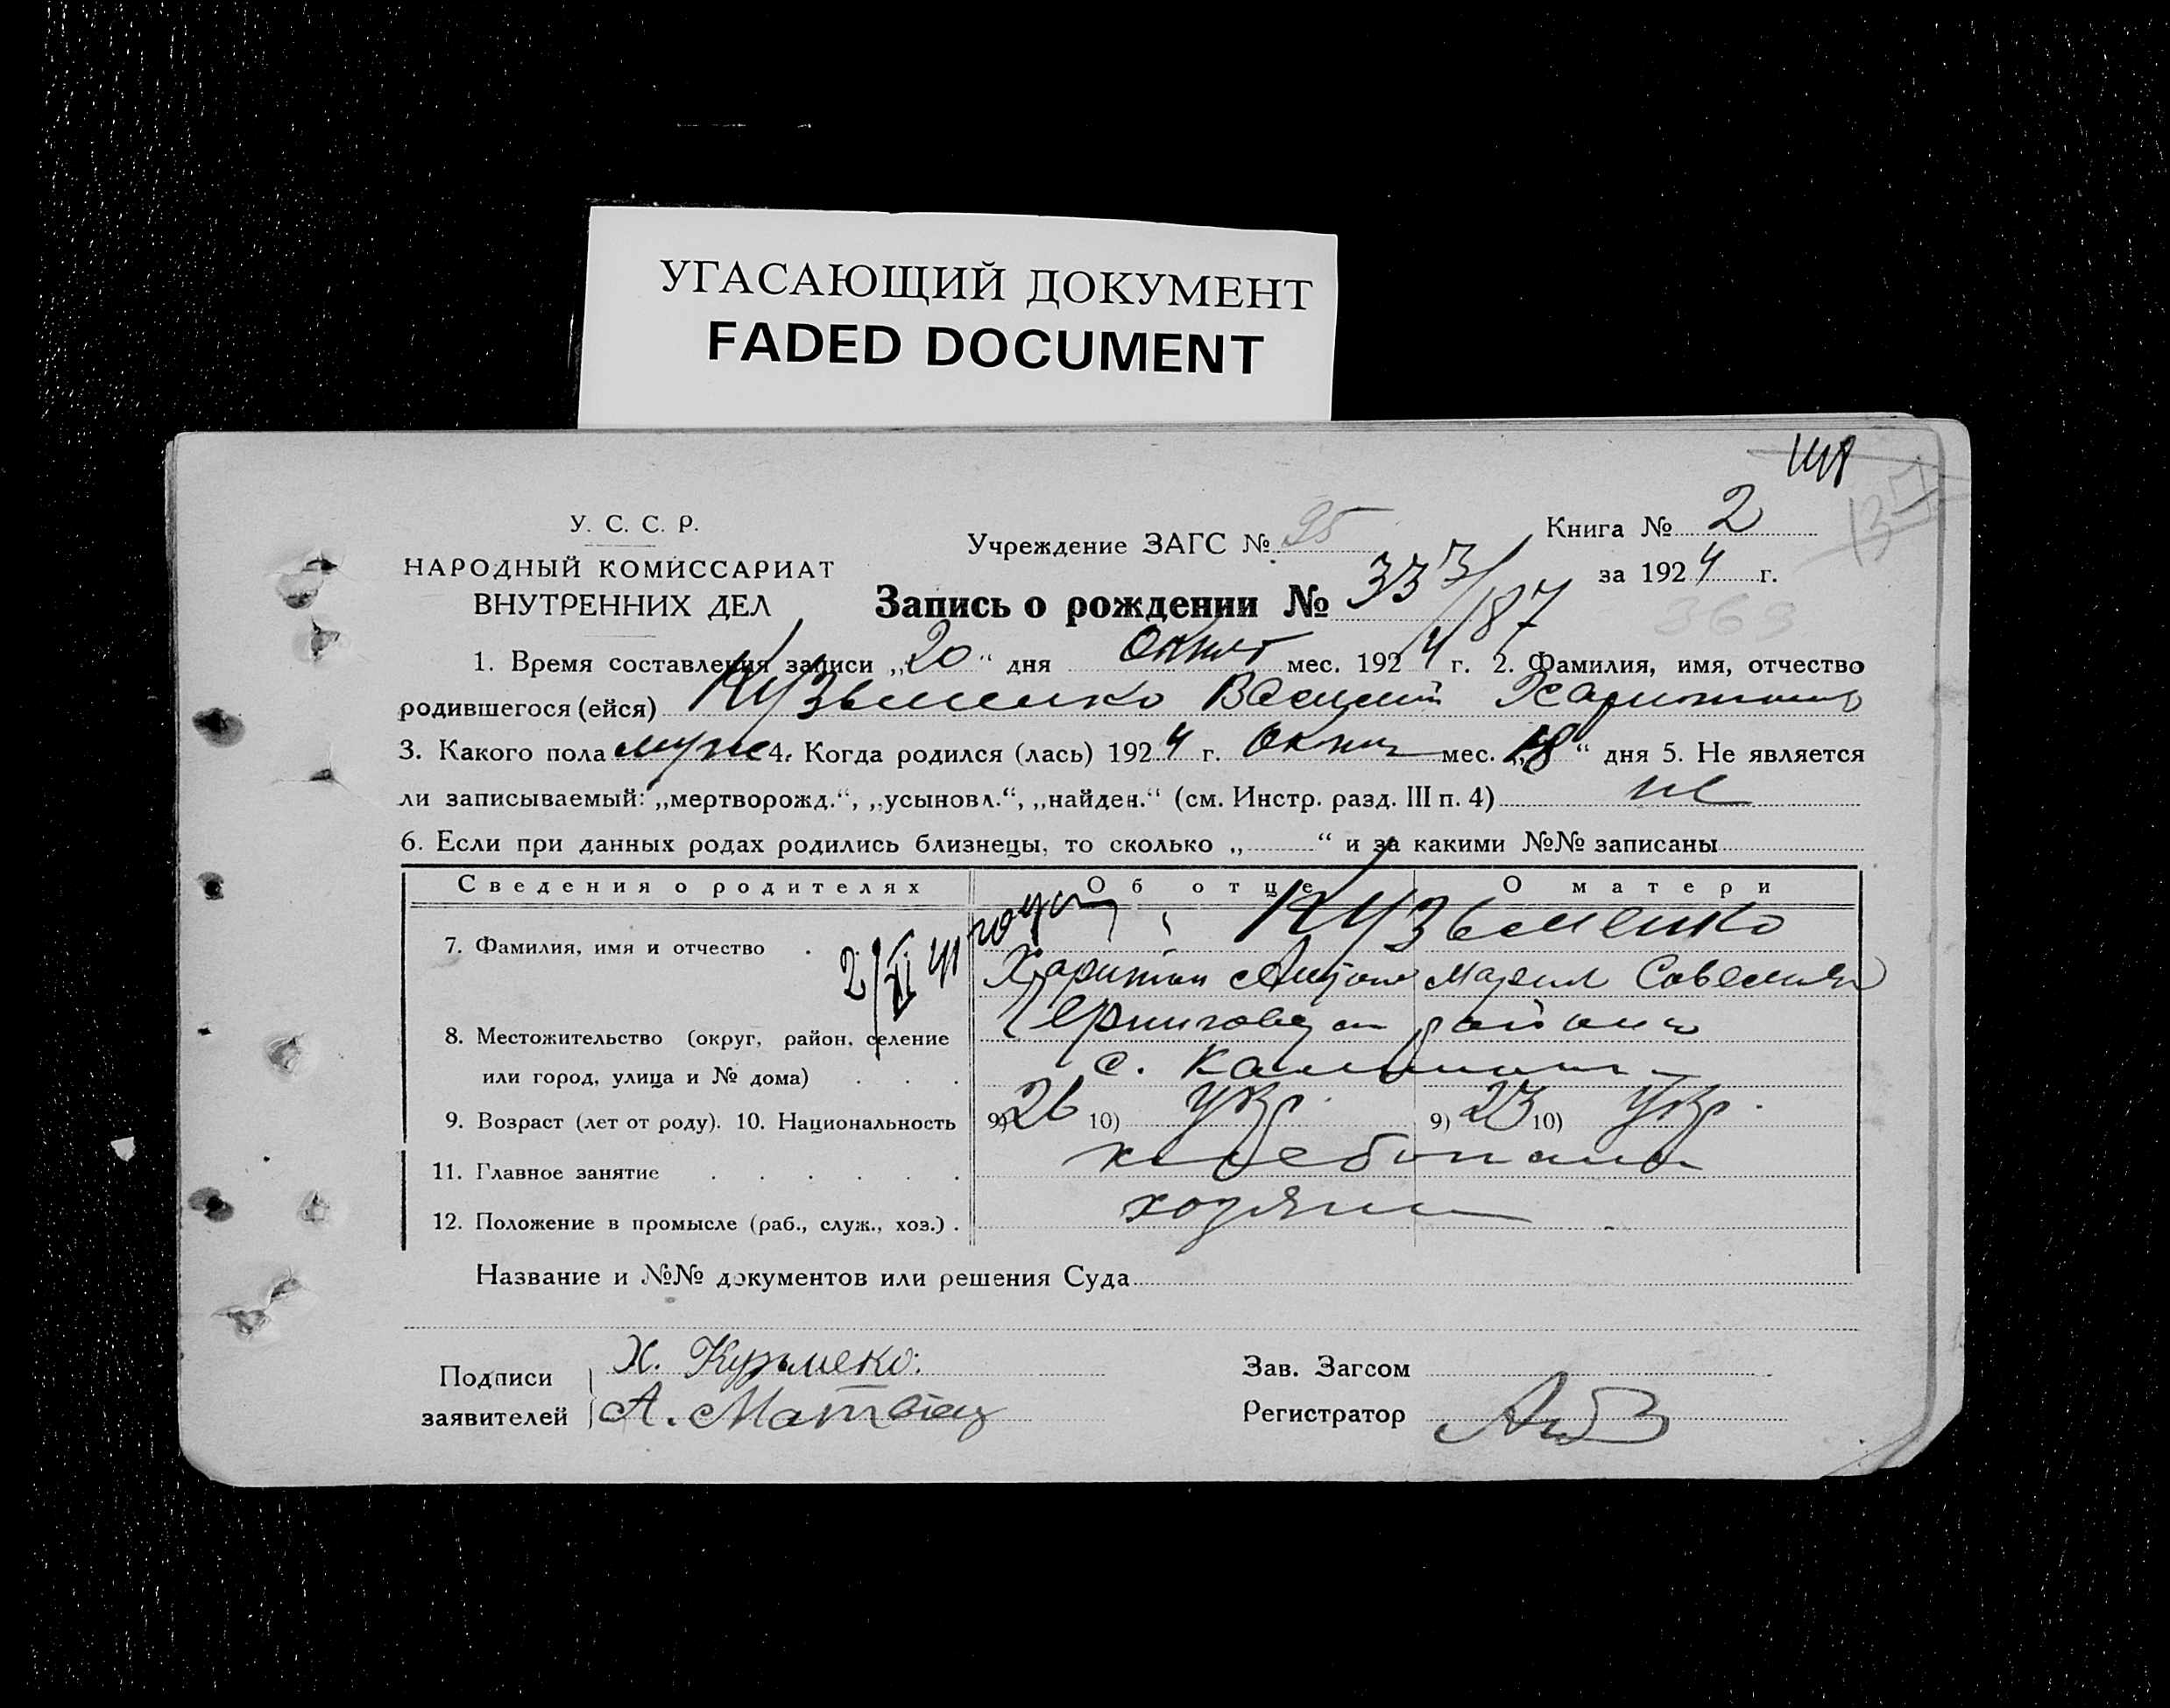 УГАСАЮЩИЙ ДОКУМЕНТ
FADED DOCUMENT
У. С. С. Р.
НАРОДНЫЙ КОМИССАРИАТ
ВНУТРЕННИХ ДЕЛ
Учреждение ЗАГС № 95
Книга № 2
за 1924 г.
Запись о рождении № 333/187
369
1. Время составления записи „20“ дня Окт мес. 1924 г. 2. Фамилия, имя, отчество
родившегося (ейся) Кузьменко Василий Харитонов
3. Какого пола муж 4. Когда родился (лась) 1924 г. Окт мес. „18“ дня 5. Не является
ли записываемый: „мертворожд.“, „усыновл.“, „найден.“ (см. Инстр. разд. III п. 4) не
6. Если при данных родах родились близнецы, то сколько „ “ и за какими №№ записаны
Сведения о родителях Об отце О матери
7. Фамилия, имя и отчество . Кузьменко
2/XI 41
Харитон Антонов Мария
8. Местожительство (округ, район, селение Черниговск района
или город, улица и № дома) . . . с.
9. Возраст (лет от роду). 10. Национальность 9) 26 10) Укр. 9) 23 10) Укр.
11. Главное занятие . . . . . . хлебопашец
12. Положение в промысле (раб., служ., хоз.) . хозяин
Название и №№ документов или решения Суда
Подписи
заявителей
Х. Кузьмеко.
А. Матвіец
Зав. Загсом
Регистратор